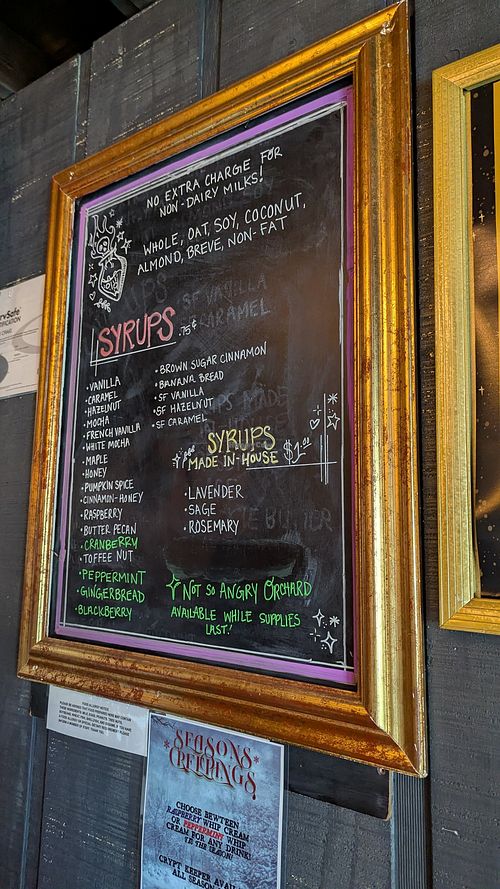 NO EXTRA CHARGE FOR
NON-DAIRY MILKS!
WHOLE, OAT, SOY, COCONUT,
ALMOND, BREVE, NON-FAT
SYRUPS .75¢
•VANILLA
•CARAMEL
•HAZELNUT
•MOCHA
•FRENCH VANILLA
•WHITE MOCHA
•MAPLE
•HONEY
•PUMPKIN SPICE
•CINNAMON-HONEY
•RASPBERRY
•BUTTER PECAN
•CRANBERRY
•TOFFEE NUT
•PEPPERMINT
•GINGERBREAD
•BLACKBERRY
•BROWN SUGAR CINNAMON
•BANANA BREAD
•SF VANILLA
•SF HAZELNUT
•SF CARAMEL
SYRUPS
MADE IN-HOUSE
•LAVENDER
•SAGE
•ROSEMARY
NOT SO ANGRY ORCHARD
AVAILABLE WHILE SUPPLIES
LAST!
SEASONS
CREEPINGS
CHOOSE BEWTEEN
RASPBERRY WHIP CREAM
OR PEPPERMINT WHIP
CREAM FOR ANY DRINK!
('TIS THE SEASON)
CRYPT KEEPER
ALL